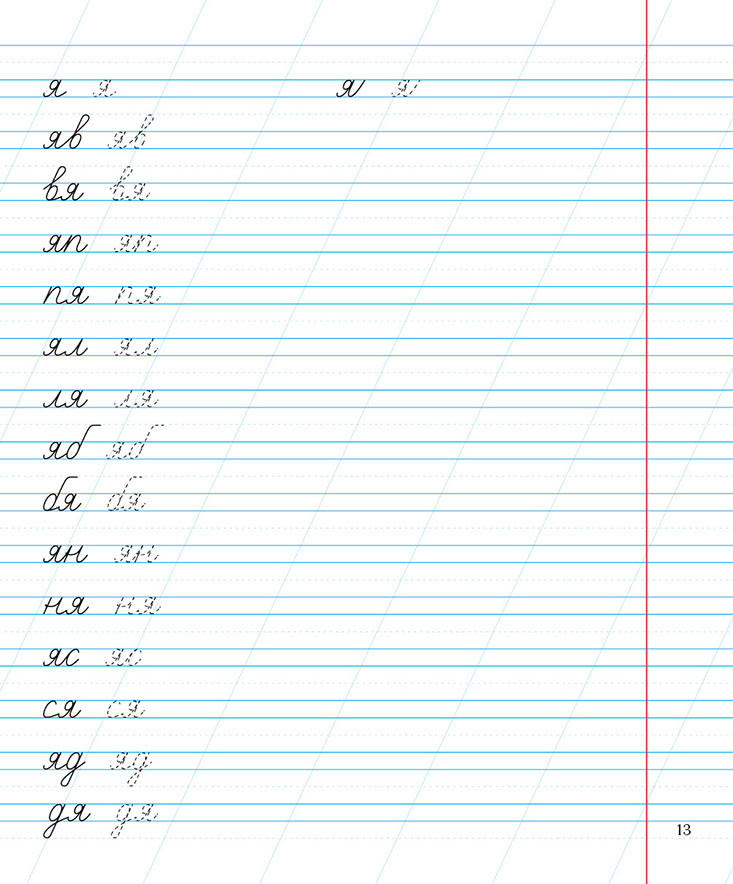 я я я я
яв яв
вя вя
яп яп
пя пя
ял ял
ля ля
яб яб
бя бя
ян ян
ня ня
яс яс
ся ся
яд яд
дя дя
13